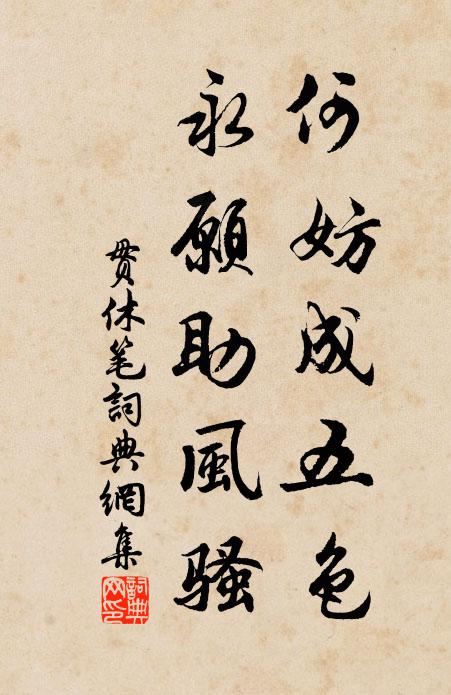 何妨成五色
永願助風騷
貫休笔詞典網集
詞典网印